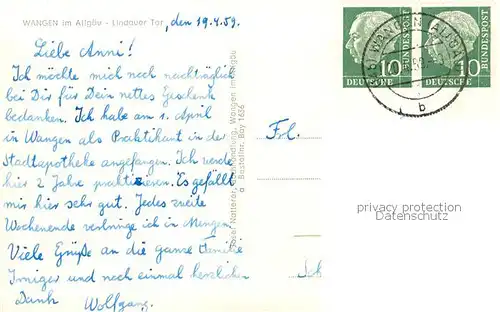 WANGEN im Allgäu - Lindauer Tor, den 19.4.59.
Liebe Anni!
Ich möchte mich noch nachträglich
bei Dir für Dein nettes Geschenk
bedanken. Ich habe am 1. April
in Wangen als Praktikant in der
Stadtapotheke angefangen. Ich werde
hier 2 Jahre praktizieren. Es gefällt
mir hier sehr gut. Jedes zweite
Wochenende verbringe ich in Mengen.
Viele Grüße an die ganze Familie
Irniger und noch einmal herzlichen
Dank Wolfgang.
Wangen im Allgäu
Bestellnr. Bay 1636
Frl.
10 DEUTSCHE BUNDESPOST
DEUTSCHE BUNDESPOST 10
WANGEN (ALLGÄU)
b
privacy protection
Datenschutz